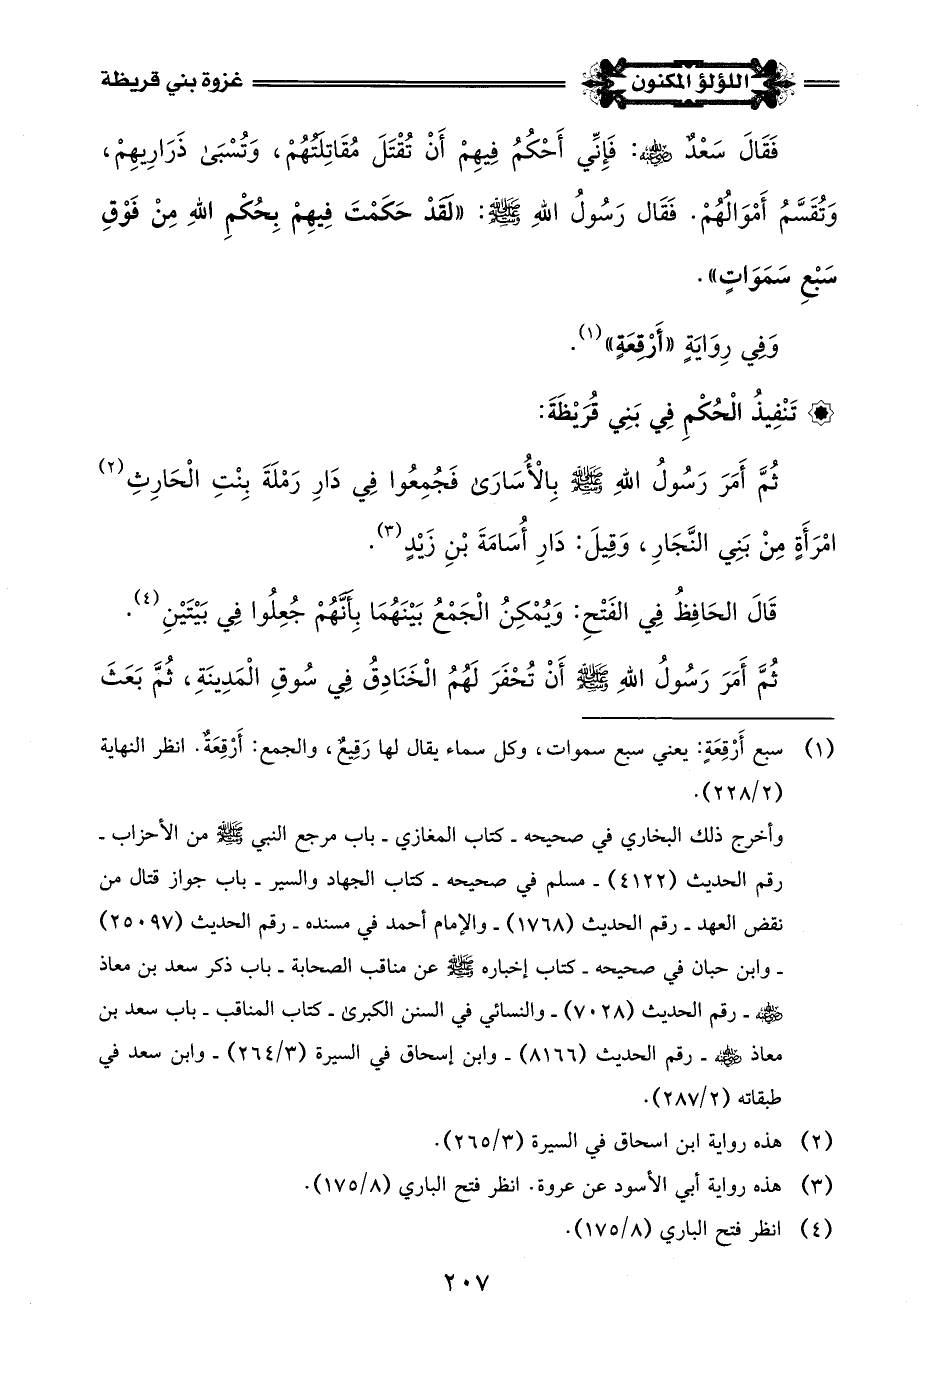 اللؤلؤ المكنون غزوة بني قريظة
فَقَالَ سَعْدٌ رضي الله عنه: فَإِنِّي أَحْكُمُ فِيهِمْ أَنْ تُقْتَلَ مُقَاتِلَتُهُمْ، وَتُسْبَىٰ ذَرَارِيهِمْ،
وَتُقَسَّمُ أَمْوَالُهُمْ. فَقَال رَسُولُ اللهِ ﷺ: «لَقَدْ حَكَمْتَ فِيهِمْ بِحُكْمِ اللهِ مِنْ فَوْقِ
سَبْعِ سَمَوَاتٍ».
وَفِي رِوَايَةٍ «أَرْقِعَةٍ»(١).
۞ تَنْفِيذُ الْحُكْمِ فِي بَنِي قُرَيْظَةَ:
ثُمَّ أَمَرَ رَسُولُ اللهِ ﷺ بِالْأُسَارَىٰ فَجُمِعُوا فِي دَارِ رَمْلَةَ بِنْتِ الْحَارِثِ(٢)
امْرَأَةٍ مِنْ بَنِي النَّجَارِ، وَقِيلَ: دَارِ أُسَامَةَ بْنِ زَيْدٍ(٣).
قَالَ الحَافِظُ فِي الفَتْحِ: وَيُمْكِنُ الْجَمْعُ بَيْنَهُمَا بِأَنَّهُمْ جُعِلُوا فِي بَيْتَيْنِ(٤).
ثُمَّ أَمَرَ رَسُولُ اللهِ ﷺ أَنْ تُحْفَرَ لَهُمُ الْخَنَادِقُ فِي سُوقِ الْمَدِينَةِ، ثُمَّ بَعَثَ
(١) سبع أَرْقِعَةٍ: يعني سبع سموات، وكل سماء يقال لها رَقِيعٌ، والجمع: أَرْقِعَةٌ. انظر النهاية
(٢٢٨/٢).
وأخرج ذلك البخاري في صحيحه ـ كتاب المغازي ـ باب مرجع النبي ﷺ من الأحزاب ـ
رقم الحديث (٤١٢٢) ـ مسلم في صحيحه ـ كتاب الجهاد والسير ـ باب جواز قتال من
نقض العهد ـ رقم الحديث (١٧٦٨) ـ والإمام أحمد في مسنده ـ رقم الحديث (٢٥٠٩٧)
ـ وابن حبان في صحيحه ـ كتاب إخباره ﷺ عن مناقب الصحابة ـ باب ذكر سعد بن معاذ
رضي الله عنه ـ رقم الحديث (٧٠٢٨) ـ والنسائي في السنن الكبرىٰ ـ كتاب المناقب ـ باب سعد بن
معاذ رضي الله عنه ـ رقم الحديث (٨١٦٦) ـ وابن إسحاق في السيرة (٢٦٤/٣) ـ وابن سعد في
طبقاته (٢٨٧/٢).
(٢) هذه رواية ابن اسحاق في السيرة (٢٦٥/٣).
(٣) هذه رواية أبي الأسود عن عروة. انظر فتح الباري (١٧٥/٨).
(٤) انظر فتح الباري (١٧٥/٨).
٢٠٧